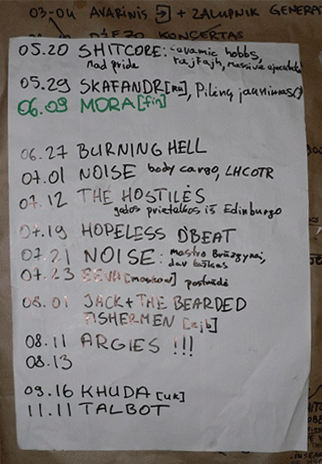 03-04 AVARINIS → + ZALUPNIK GENERAS
DŽEZO KONCERTAS
05.20 SHITCORE: cuvamic hobbs,
mad pride
05.29 SKAFANDR [ru], Pilėnų jaunimas()
06.09 MORA [fin]
06.27 BURNING HELL
07.01 NOISE body cargo, LHCOTR
07.12 THE HOSTILĖS
gatos prietalkos iš Edinburgo
07.19 HOPELESS DBEAT
07.21 NOISE: mastro Brūzgynai,
07.23 EEVA [moskow] postmodė
08.01 JACK + THE BEARDED
FISHERMEN [ejb]
08.11 ARGIES !!!
08.13
09.16 KHUDA [uk]
11.11 TALBOT